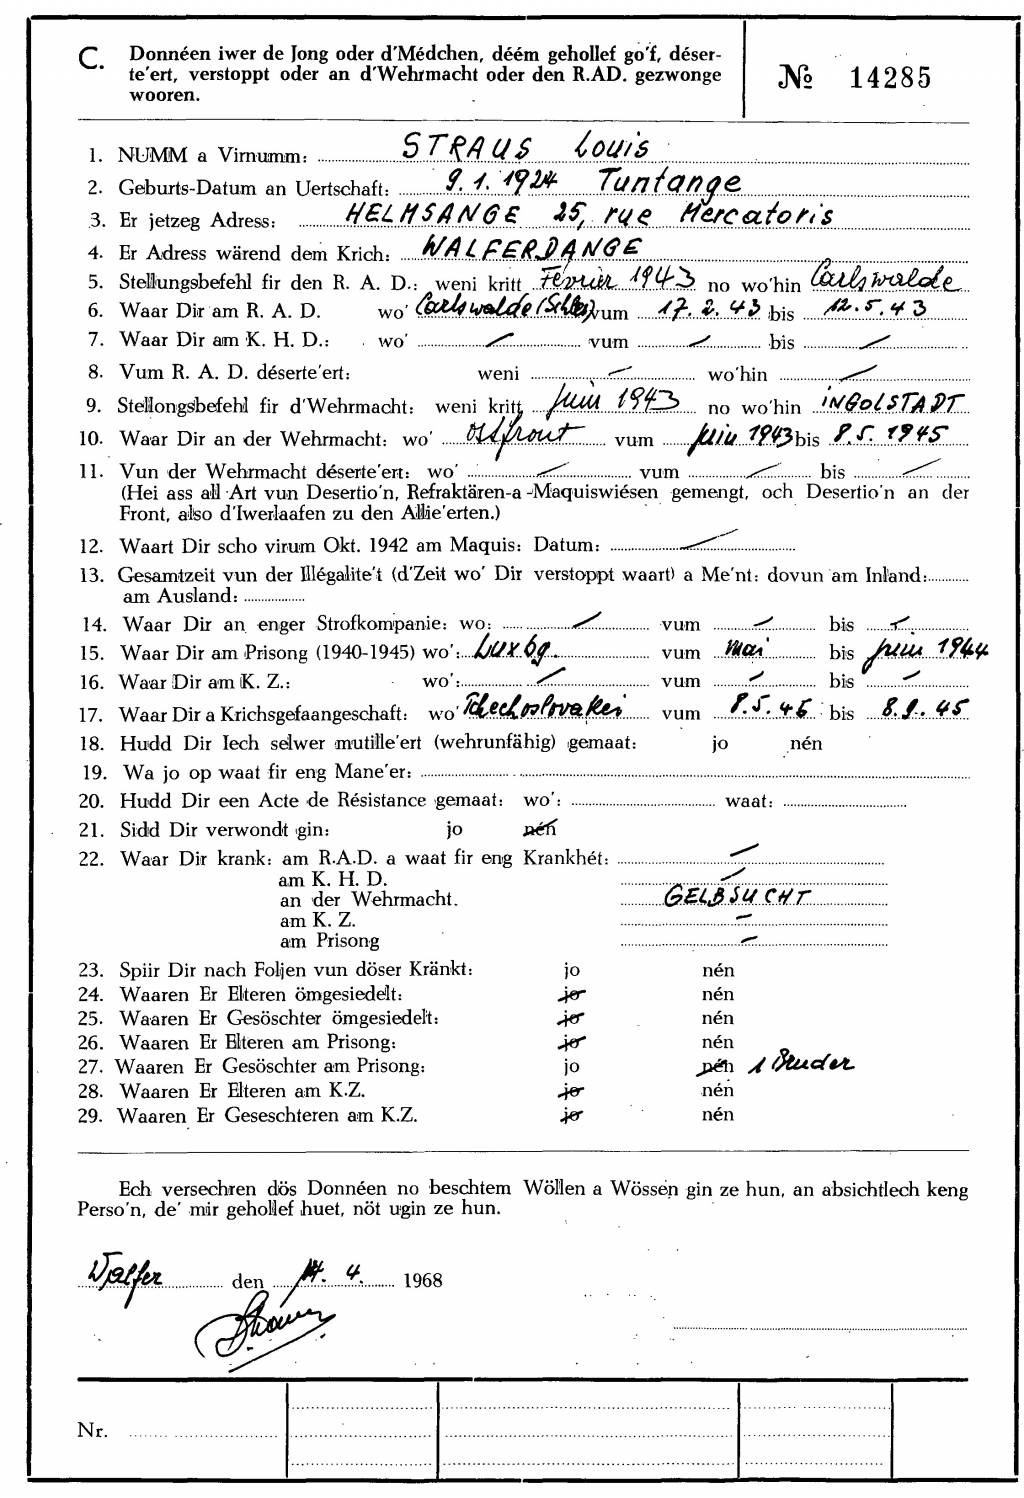 C. Donnéen iwer de Jong oder d'Médchen, déém gehollef go'f, déser-
te'ert, verstoppt oder an d'Wehrmacht oder den R.AD. gezwonge
wooren.
№ 14285
1. NUMM a Virnumm: STRAUS Louis
2. Geburts-Datum an Uertschaft: 9.1.1924 Tuntange
3. Er jetzeg Adress: HELMSANGE 25, rue Mercatoris
4. Er Adress wärend dem Krich: WALFERDANGE
5. Stellungsbefehl fir den R. A. D.: weni kritt Février 1943 no wo'hin Carlswalde
6. Waar Dir am R. A. D. wo' Carlswalde (Schles) vum 17.2.43 bis 12.5.43
7. Waar Dir am K. H. D.: wo' — vum — bis —
8. Vum R. A. D. déserte'ert: weni — wo'hin —
9. Stellongsbefehl fir d'Wehrmacht: weni kritt Juin 1943 no wo'hin INGOLSTADT
10. Waar Dir an der Wehrmacht: wo' Ostfront vum Juin 1943 bis 8.5.1945
11. Vun der Wehrmacht déserte'ert: wo' — vum — bis —
(Hei ass all Art vun Desertio'n, Refraktären-a-Maquiswiésen gemengt, och Desertio'n an der
Front, also d'Iwerlaafen zu den Allie'erten.)
12. Waart Dir scho virum Okt. 1942 am Maquis: Datum: —
13. Gesamtzeit vun der Illégalite't (d'Zeit wo' Dir verstoppt waart) a Me'nt: dovun am Inland:
am Ausland:
14. Waar Dir an enger Strofkompanie: wo: — vum — bis —
15. Waar Dir am Prisong (1940-1945) wo': Luxbg. vum Mai bis Juin 1944
16. Waar Dir am K. Z.: wo': — vum — bis —
17. Waar Dir a Krichsgefaangeschaft: wo' Tchechoslovakei vum 8.5.45 bis 8.9.45
18. Hudd Dir Iech selwer mutille'ert (wehrunfähig) gemaat: jo nén
19. Wa jo op waat fir eng Mane'er:
20. Hudd Dir een Acte de Résistance gemaat: wo': waat:
21. Sidd Dir verwondt gin: jo nén
22. Waar Dir krank: am R.A.D. a waat fir eng Krankhét: —
am K. H. D. —
an der Wehrmacht. GELBSUCHT
am K. Z. —
am Prisong —
23. Spiir Dir nach Foljen vun döser Kränkt: jo nén
24. Waaren Er Elteren ömgesiedelt: jo nén
25. Waaren Er Gesöschter ömgesiedelt: jo nén
26. Waaren Er Elteren am Prisong: jo nén
27. Waaren Er Gesöschter am Prisong: jo nén 1 Bruder
28. Waaren Er Elteren am K.Z. jo nén
29. Waaren Er Geseschteren am K.Z. jo nén
Ech versechren dös Donnéen no beschtem Wöllen a Wössen gin ze hun, an absichtlech keng
Perso'n, de' mir gehollef huet, nöt ugin ze hun.
Walfer den 14. 4. 1968
Nr.